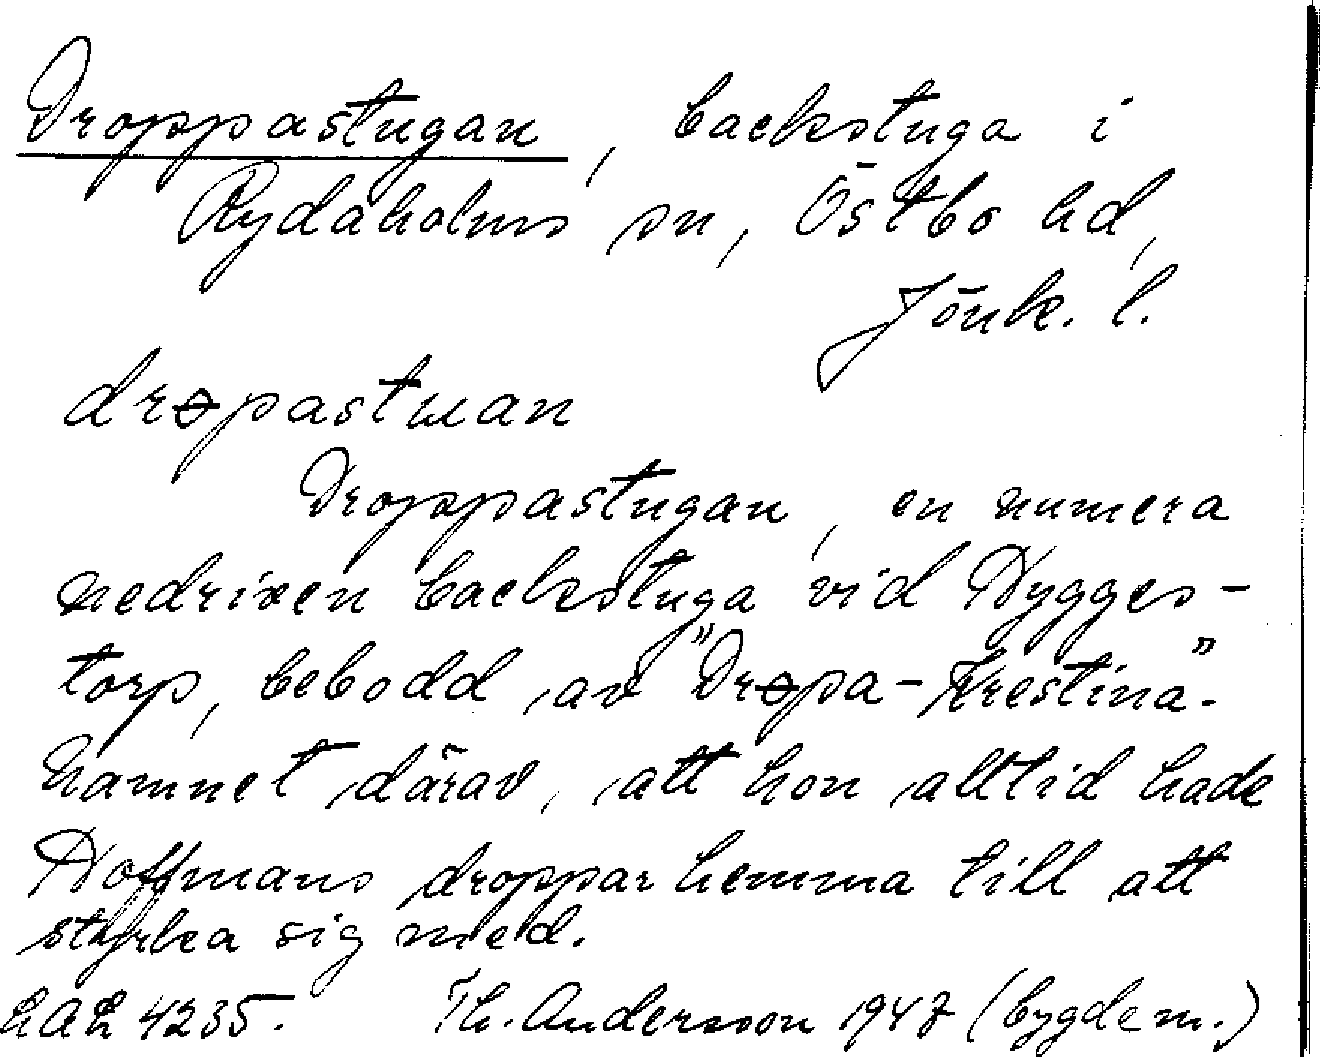 Droppastugan, backstuga i
Rydaholms sn, Östbo hd,
Jönk. l.
drɵpastuan
Droppastugan, en numera
nedriven backstuga vid Hygges-
torp, bebodd av "Drɵpa-Krestina".
Namnet därav, att hon alltid hade
Hoffmans droppar hemma till att
styrka sig med.
LAL 4235. Th. Andersson 1947 (bygdem.)